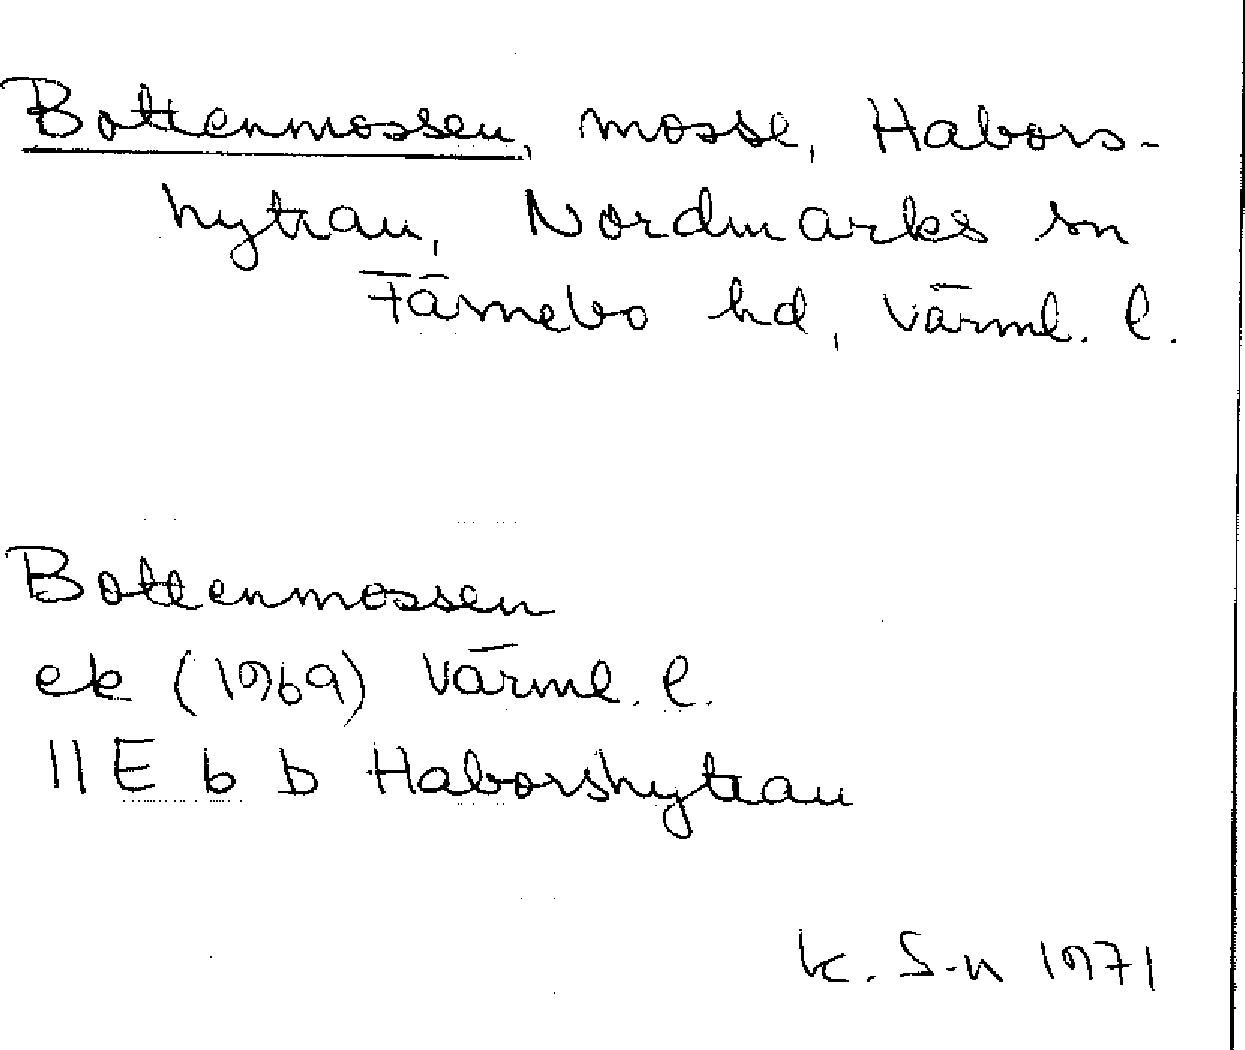 Bottenmossen, mosse, Habors-
hyttan, Nordmarks sn
Färnebo hd, Värml. l.
Bottenmossen
ek (1969) Värml. l.
11E b b Haborshyttan
K. S-n 1971